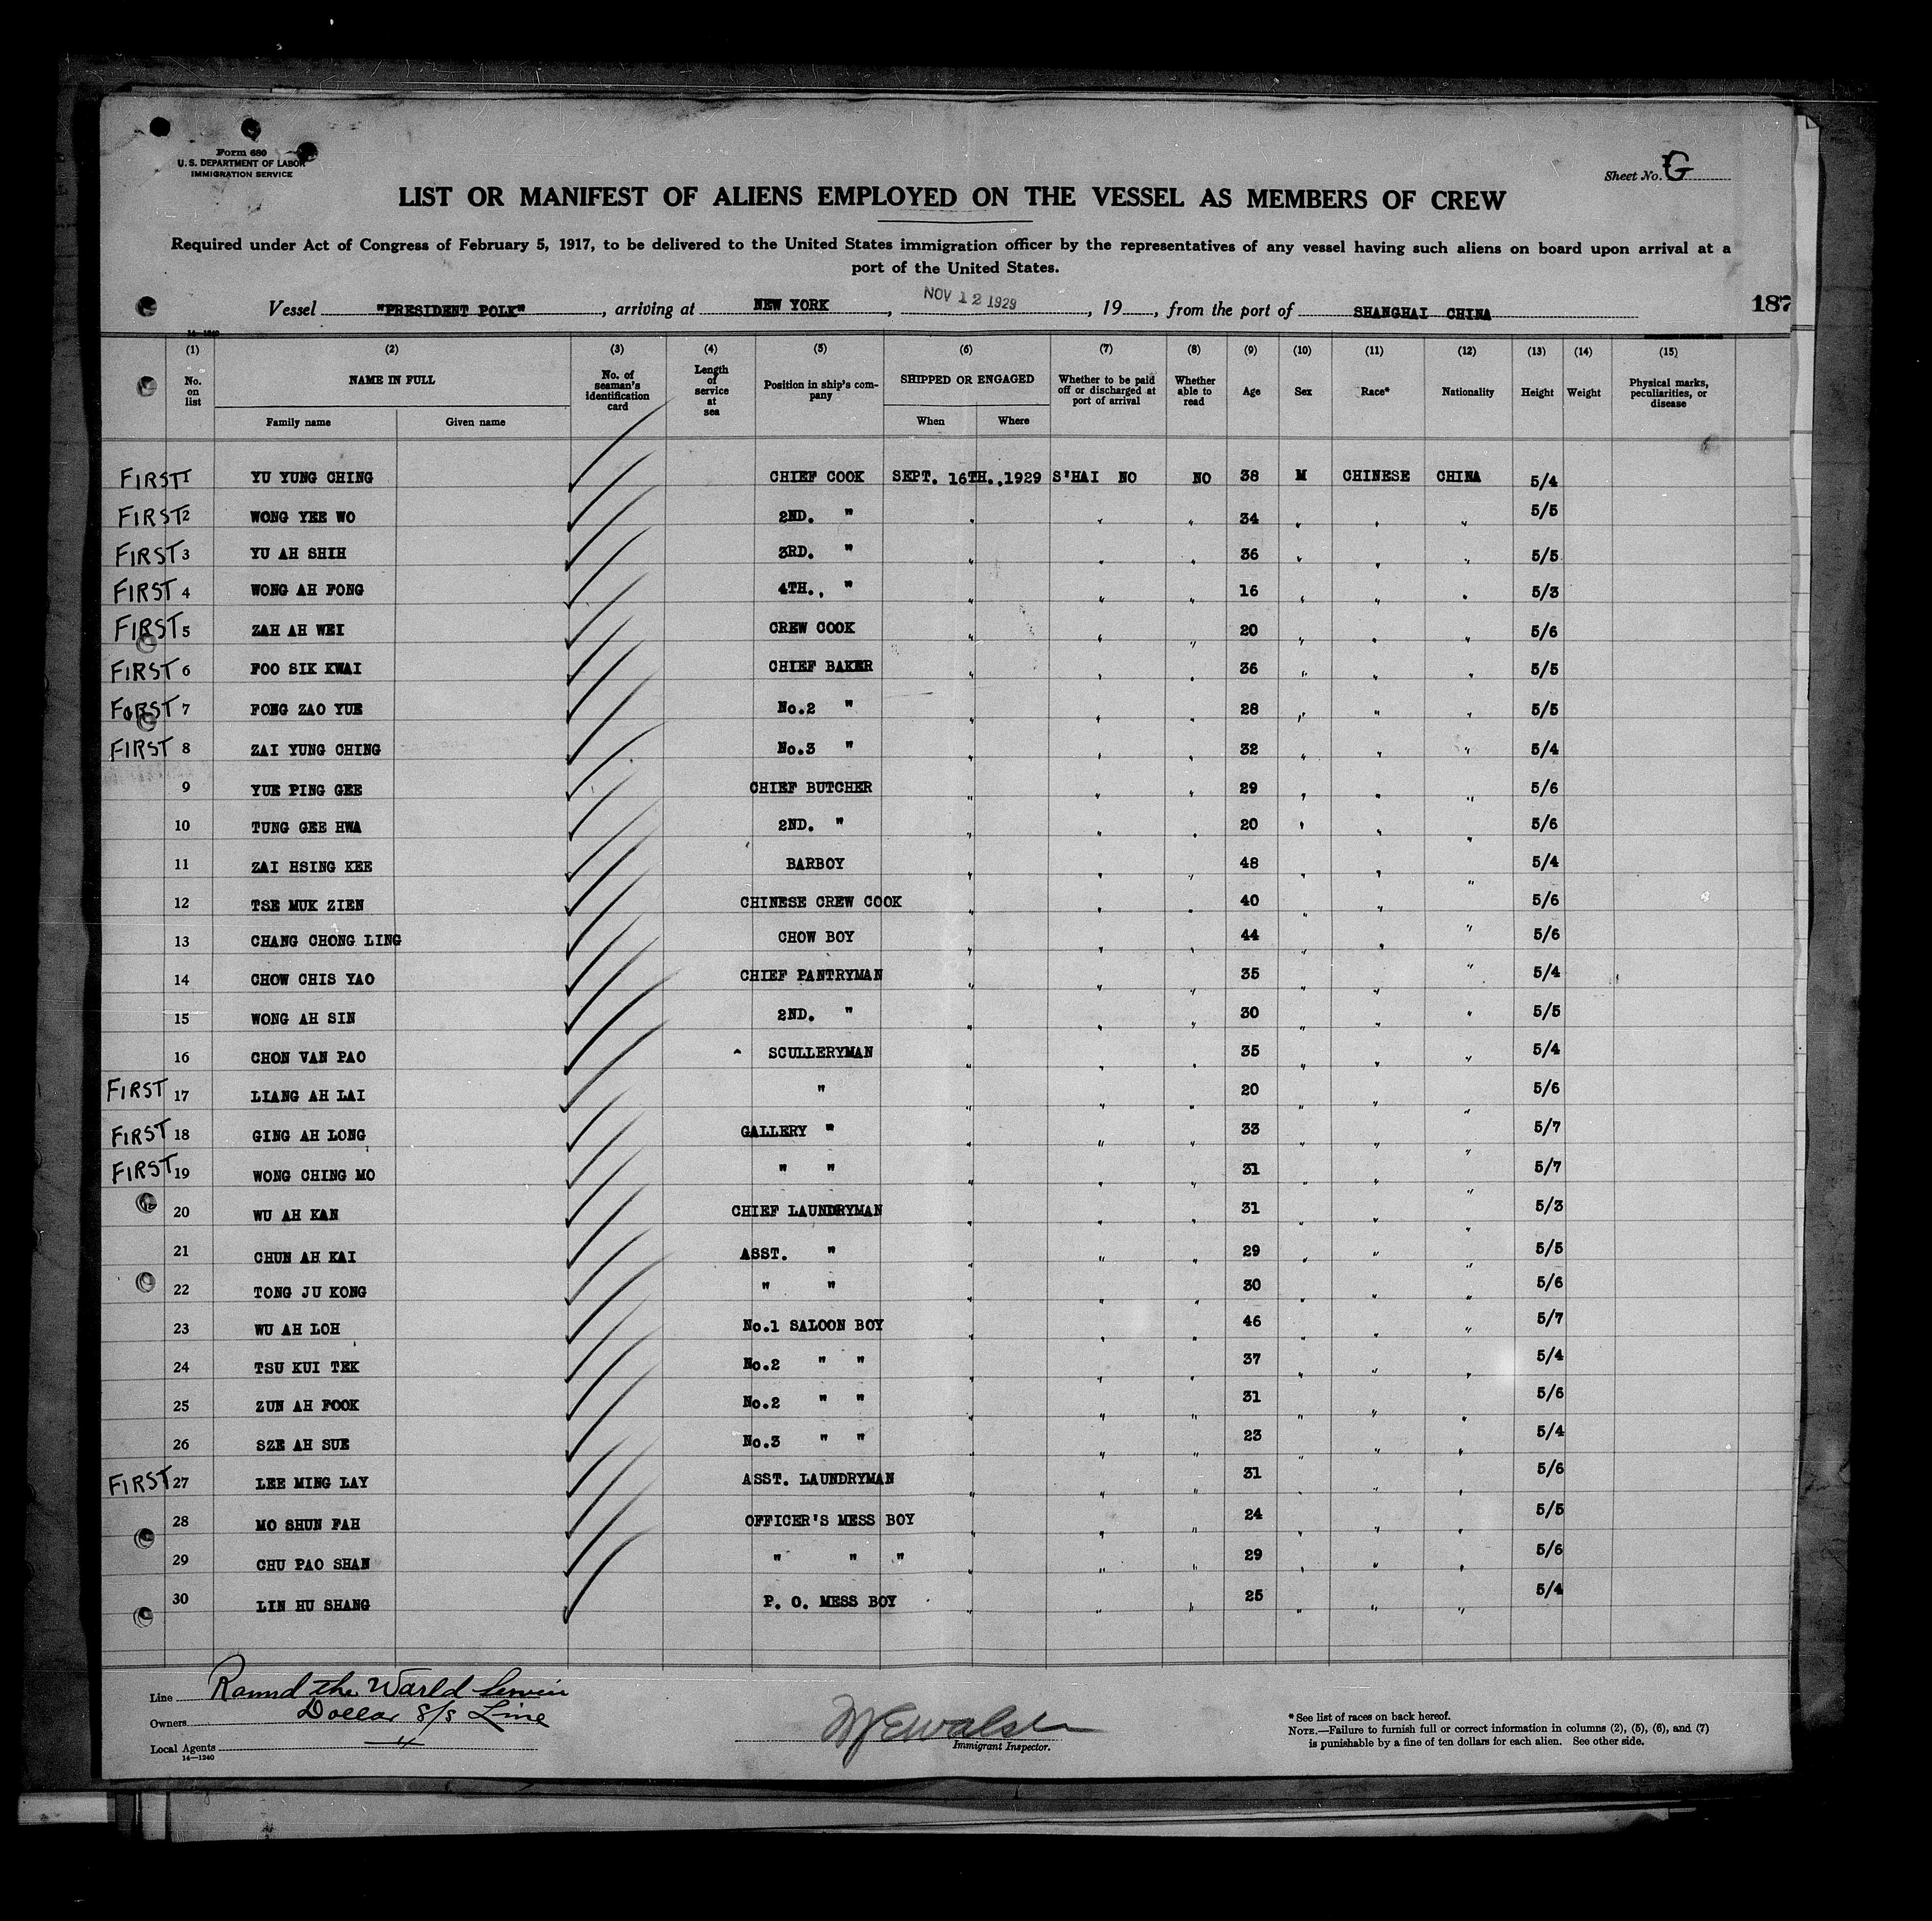 Form 680
U. S. DEPARTMENT OF LABOR
IMMIGRATION SERVICE
Sheet No. G
LIST OR MANIFEST OF ALIENS EMPLOYED ON THE VESSEL AS MEMBERS OF CREW
Required under Act of Congress of February 5, 1917, to be delivered to the United States immigration officer by the representatives of any vessel having such aliens on board upon arrival at a
port of the United States.
Vessel "PRESIDENT POLK", arriving at NEW YORK, NOV 12 1929, 19, from the port of SHANGHAI CHINA
187
14—1240
(1) (2) (3) (4) (5) (6) (7) (8) (9) (10) (11) (12) (13) (14) (15)
No. on list NAME IN FULL Family name Given name No. of seaman's identification card Length of service at sea Position in ship's company SHIPPED OR ENGAGED When Where Whether to be paid off or discharged at port of arrival Whether able to read Age Sex Race* Nationality Height Weight Physical marks, peculiarities, or disease
FIRST 1 YU YUNG CHING CHIEF COOK SEPT. 16TH.,1929 S'HAI NO NO 38 M CHINESE CHINA 5/4
FIRST 2 WONG YEE WO 2ND. " " " " 34 " " " 5/5
FIRST 3 YU AH SHIH 3RD. " " " " 36 " " " 5/5
FIRST 4 WONG AH FONG 4TH., " " " " 16 " " " 5/3
FIRST 5 ZAH AH WEI CREW COOK " " " 20 " " " 5/6
FIRST 6 FOO SIK KWAI CHIEF BAKER " " " 36 " " " 5/5
FIRST 7 FONG ZAO YUE No.2 " " " " 28 " " " 5/5
FIRST 8 ZAI YUNG CHING No.3 " " " " 32 " " " 5/4
9 YUE PING GEE CHIEF BUTCHER " " " 29 " " " 5/6
10 TUNG GEE HWA 2ND. " " " " 20 " " " 5/6
11 ZAI HSING KEE BARBOY " " " 48 " " " 5/4
12 TSE MUK ZIEN CHINESE CREW COOK " " " 40 " " " 5/6
13 CHANG CHONG LING CHOW BOY " " " 44 " " " 5/6
14 CHOW CHIS YAO CHIEF PANTRYMAN " " " 35 " " " 5/4
15 WONG AH SIN 2ND. " " " " 30 " " " 5/5
16 CHON VAN PAO SCULLERYMAN " " " 35 " " " 5/4
FIRST 17 LIANG AH LAI " " " " 20 " " " 5/6
FIRST 18 GING AH LONG GALLERY " " " " 33 " " " 5/7
FIRST 19 WONG CHING MO " " " " " 31 " " " 5/7
20 WU AH KAN CHIEF LAUNDRYMAN " " " 31 " " " 5/3
21 CHUN AH KAI ASST. " " " " 29 " " " 5/5
22 TONG JU KONG " " " " " 30 " " " 5/6
23 WU AH LOH No.1 SALOON BOY " " " 46 " " " 5/7
24 TSU KUI TEK No.2 " " " " " 37 " " " 5/4
25 ZUN AH FOOK No.2 " " " " " 31 " " " 5/6
26 SZE AH SUE No.3 " " " " " 23 " " " 5/4
FIRST 27 LEE MING LAY ASST. LAUNDRYMAN " " " 31 " " " 5/6
28 MO SHUN FAH OFFICER'S MESS BOY " " " 24 " " " 5/5
29 CHU PAO SHAN " " " " " " 29 " " " 5/6
30 LIN HU SHANG P. O. MESS BOY " " " 25 " " " 5/4
Line Round the World Service
Owners Dollar S/S Line
Local Agents "
14—1240
Walsh
Immigrant Inspector.
* See list of races on back hereof.
NOTE.—Failure to furnish full or correct information in columns (2), (5), (6), and (7)
is punishable by a fine of ten dollars for each alien. See other side.